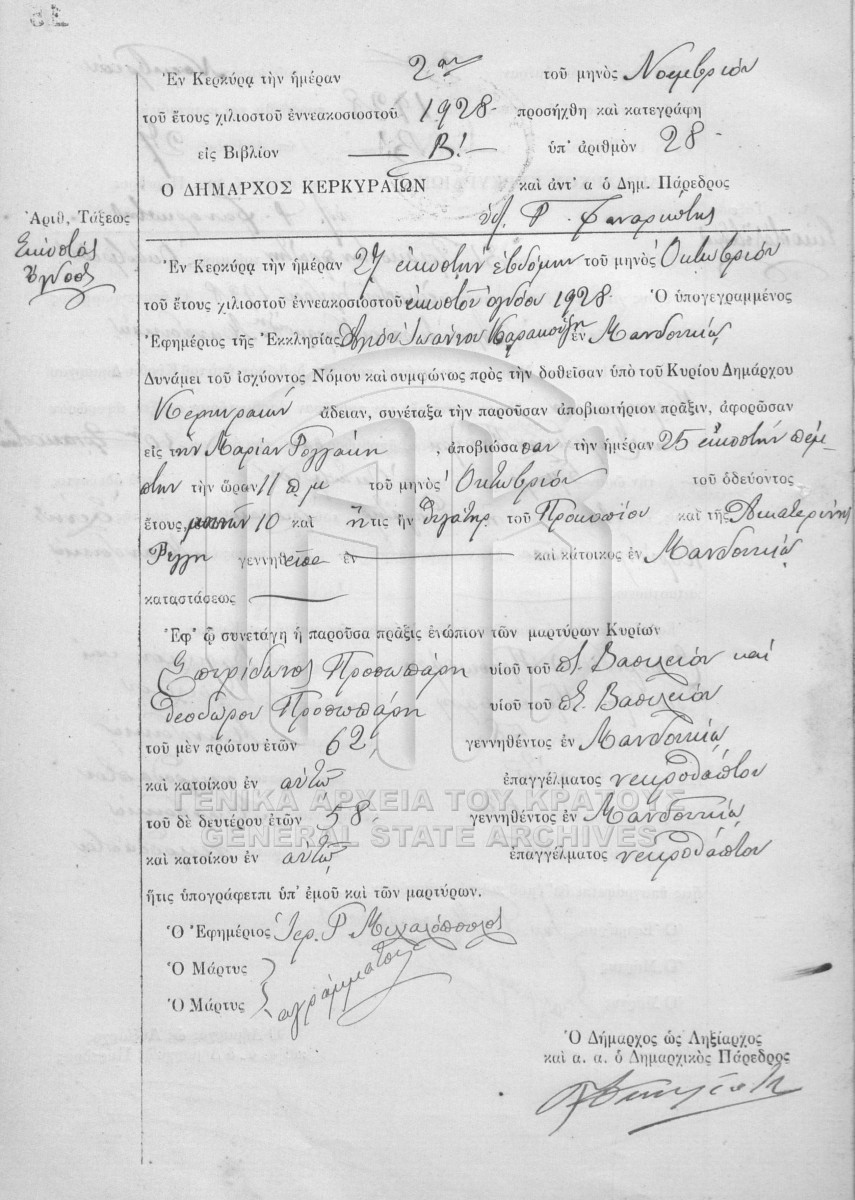 Ἐν Κερκύρᾳ τὴν ἡμέραν 2αν τοῦ μηνὸς Νοεμβρίου
τοῦ ἔτους χιλιοστοῦ ἐννεακοσιοστοῦ 1928 προσήχθη καὶ κατεγράφη
εἰς Βιβλίον Β! ὑπ' ἀριθμὸν 28
Ὁ ΔΗΜΑΡΧΟΣ ΚΕΡΚΥΡΑΙΩΝ καὶ ἀντ' α ὁ Δημ. Πάρεδρος
Ἀριθ. Τάξεως
Εἰκοστὸς
Ὄγδοος
Ἐν Κερκύρᾳ τὴν ἡμέραν 27 εἰκοστὴν ἑβδόμην τοῦ μηνὸς Ὀκτωβρίου
τοῦ ἔτους χιλιοστοῦ ἐννεακοσιοστοῦ εἰκοστοῦ ὀγδόου 1928 Ὁ ὑπογεγραμμένος
Ἐφημέριος τῆς Ἐκκλησίας Ἁγίου Ἰωάννου ἐν Μανδουκίῳ
Δυνάμει τοῦ ἰσχύοντος Νόμου καὶ συμφώνως πρὸς τὴν δοθεῖσαν ὑπὸ τοῦ Κυρίου Δημάρχου
Κερκυραίων ἄδειαν, συνέταξα τὴν παροῦσαν ἀποβιωτήριον πρᾶξιν, ἀφορῶσαν
εἰς τὴν Μαρίαν , ἀποβιώσασαν τὴν ἡμέραν 25 εἰκοστὴν πέμ-
πτην τὴν ὥραν 11 π μ τοῦ μηνὸς Ὀκτωβρίου τοῦ ὁδεύοντος
ἔτους, 10 καὶ ἥτις ἦν θυγάτηρ τοῦ Προκοπίου καὶ τῆς Αἰκατερίνης
γεννηθεῖσα ἐν καὶ κάτοικος ἐν Μανδουκίῳ
καταστάσεως
Ἐφ' ᾧ συνετάγη ἡ παροῦσα πρᾶξις ἐνώπιον τῶν μαρτύρων Κυρίων
Σπυρίδωνος Προσωπάρη υἱοῦ τοῦ ποτ. Βασιλείου καὶ
Θεοδώρου Προσωπάρη υἱοῦ τοῦ ποτ. Βασιλείου
τοῦ μὲν πρώτου ἐτῶν 62, γεννηθέντος ἐν Μανδουκίῳ
καὶ κατοίκου ἐν αὐτῷ ἐπαγγέλματος νεκροθάπτου
ΓΕΝΙΚΑ ΑΡΧΕΙΑ ΤΟΥ ΚΡΑΤΟΥΣ
τοῦ δὲ δευτέρου ἐτῶν 58, γεννηθέντος ἐν Μανδουκίῳ
GENERAL STATE ARCHIVES
καὶ κατοίκου ἐν αὐτῷ ἐπαγγέλματος νεκροθάπτου
ἥτις ὑπογράφεται ὑπ' ἐμοῦ καὶ τῶν μαρτύρων.
Ὁ Ἐφημέριος Ἱερ. Ρ. Μιχαλόπουλος
Ὁ Μάρτυς
ἀγράμματοι
Ὁ Μάρτυς
Ὁ Δήμαρχος ὡς Ληξίαρχος
καὶ α. α. ὁ Δημαρχικὸς Πάρεδρος